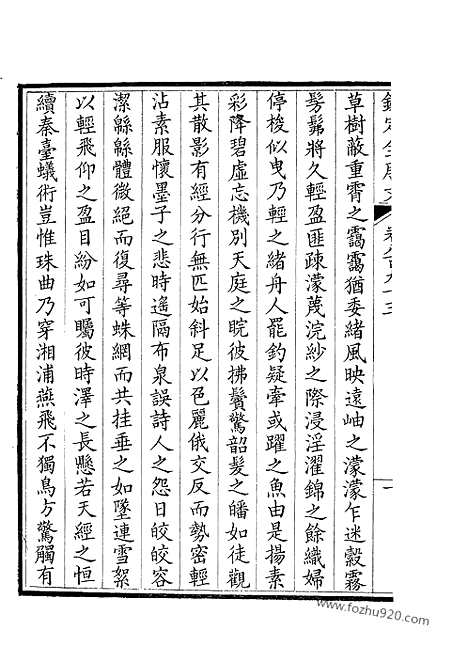 草樹蔽重霄之靄靄猶委緒風映遠岫之濛濛乍迷縠霧
髣髴將久輕盈匪疎濛蔑浣紗之際浸淫濯錦之餘織婦
停梭似曳乃輕之緒舟人罷釣疑牽或躍之魚由是揚素
彩降碧虛忘機別天庭之晥彼拂鬢驚韶髮之皤如徒觀
其散影有經分行無匹始斜足以色麗俄交反而勢密輕
沾素服懷墨子之悲時遙隔布泉誤詩人之怨日皎皎容
潔緜緜體微絕而復尋等蛛網而共挂垂之如墜連雪絮
以輕飛仰之盈目紛如可矚彼時澤之長懸若天經之恒
續秦臺蟻術豈惟珠曲乃穿湘浦燕飛不獨鳥方驚觸有
www.fozhu920.com